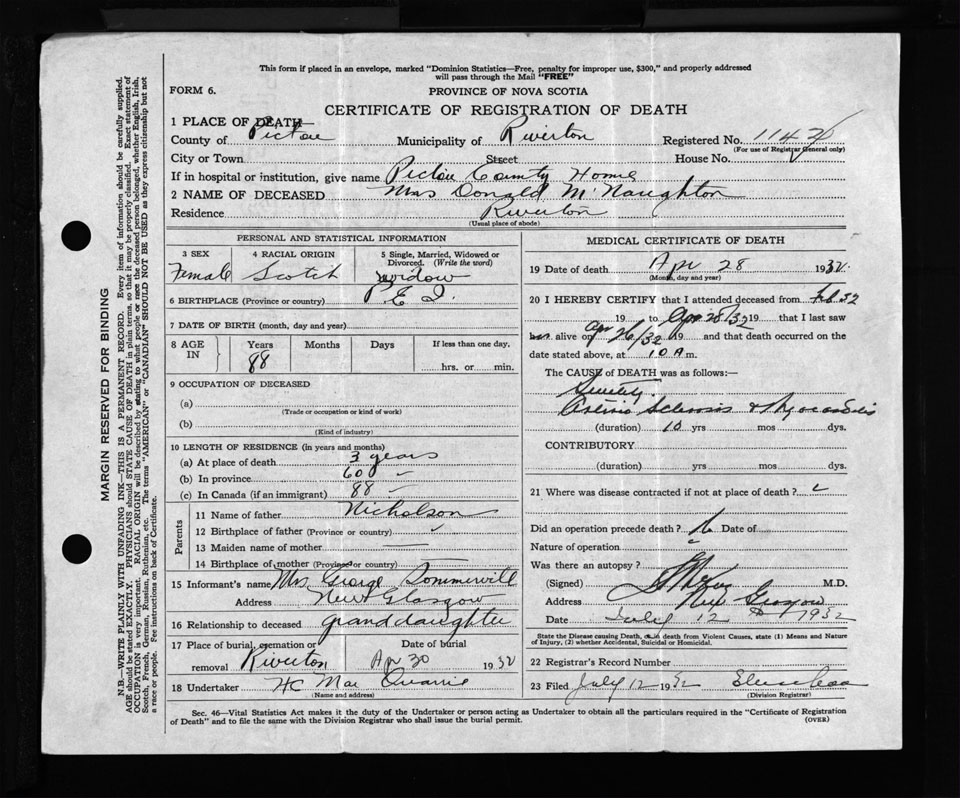 This form if placed in an envelope, marked "Dominion Statistics—Free, penalty for improper use, $300," and properly addressed
will pass through the Mail "FREE"
FORM 6.
PROVINCE OF NOVA SCOTIA
CERTIFICATE OF REGISTRATION OF DEATH
1 PLACE OF DEATH
County of Pictou Municipality of Riverton Registered No. 1142
(For use of Registrar General only)
City or Town Street House No.
If in hospital or institution, give name Pictou County Home
2 NAME OF DECEASED Mrs Donald McNaughton
Residence Riverton
(Usual place of abode)
PERSONAL AND STATISTICAL INFORMATION
3 SEX 4 RACIAL ORIGIN 5 Single, Married, Widowed or
Divorced. (Write the word)
Female Scotch widow
6 BIRTHPLACE (Province or country) P E I.
7 DATE OF BIRTH (month, day and year)
8 AGE IN Years Months Days If less than one day.
88 hrs. or min.
9 OCCUPATION OF DECEASED
(a)
(Trade or occupation or kind of work)
(b)
(Kind of industry)
10 LENGTH OF RESIDENCE (in years and months)
(a) At place of death 3 years
(b) In province 60
(c) In Canada (if an immigrant) 88
Parents
11 Name of father Nicholson
12 Birthplace of father (Province or country)
13 Maiden name of mother
14 Birthplace of mother (Province or country)
15 Informant's name Mrs George Sommerville
Address New Glasgow
16 Relationship to deceased granddaughter
17 Place of burial, cremation or removal Riverton Date of burial Ap 30 1932
18 Undertaker HC Mac Quarrie
(Name and address)
MEDICAL CERTIFICATE OF DEATH
19 Date of death Ap 28 1932.
(Month, day and year)
20 I HEREBY CERTIFY that I attended deceased from Feb 32
19 to Apr 28/32 19 that I last saw
her alive on Apr 26/32 19 and that death occurred on the
date stated above, at 10 A m.
The CAUSE of DEATH was as follows:—
Senility
Arterio Sclerosis & Myocarditis
(duration) 10 yrs mos dys.
CONTRIBUTORY
(duration) yrs mos dys.
21 Where was disease contracted if not at place of death?
Did an operation precede death? Date of
Nature of operation
Was there an autopsy?
(Signed) M.D.
Address New Glasgow
Date July 12 1932
State the Disease causing Death, or in death from Violent Causes, state (1) Means and Nature
of Injury, (2) whether Accidental, Suicidal or Homicidal.
22 Registrar's Record Number
23 Filed July 12 1932
(Division Registrar)
Sec. 46—Vital Statistics Act makes it the duty of the Undertaker or person acting as Undertaker to obtain all the particulars required in the "Certificate of Registration
of Death" and to file the same with the Division Registrar who shall issue the burial permit. (OVER)
MARGIN RESERVED FOR BINDING
N.B.—WRITE PLAINLY WITH UNFADING INK—THIS IS A PERMANENT RECORD. Every item of information should be carefully supplied.
AGE should be stated EXACTLY. PHYSICIANS should STATE CAUSE OF DEATH in plain terms, so that it may be properly classified. Exact statement of
OCCUPATION is very important. RACIAL ORIGIN will be described by stating to what people or race the deceased person belonged, whether English, Irish,
Scotch, French, German, Russian, Ruthenian, etc. The terms "AMERICAN" or "CANADIAN" SHOULD NOT BE USED as they express citizenship but not
a race or people. See instructions on back of Certificate.